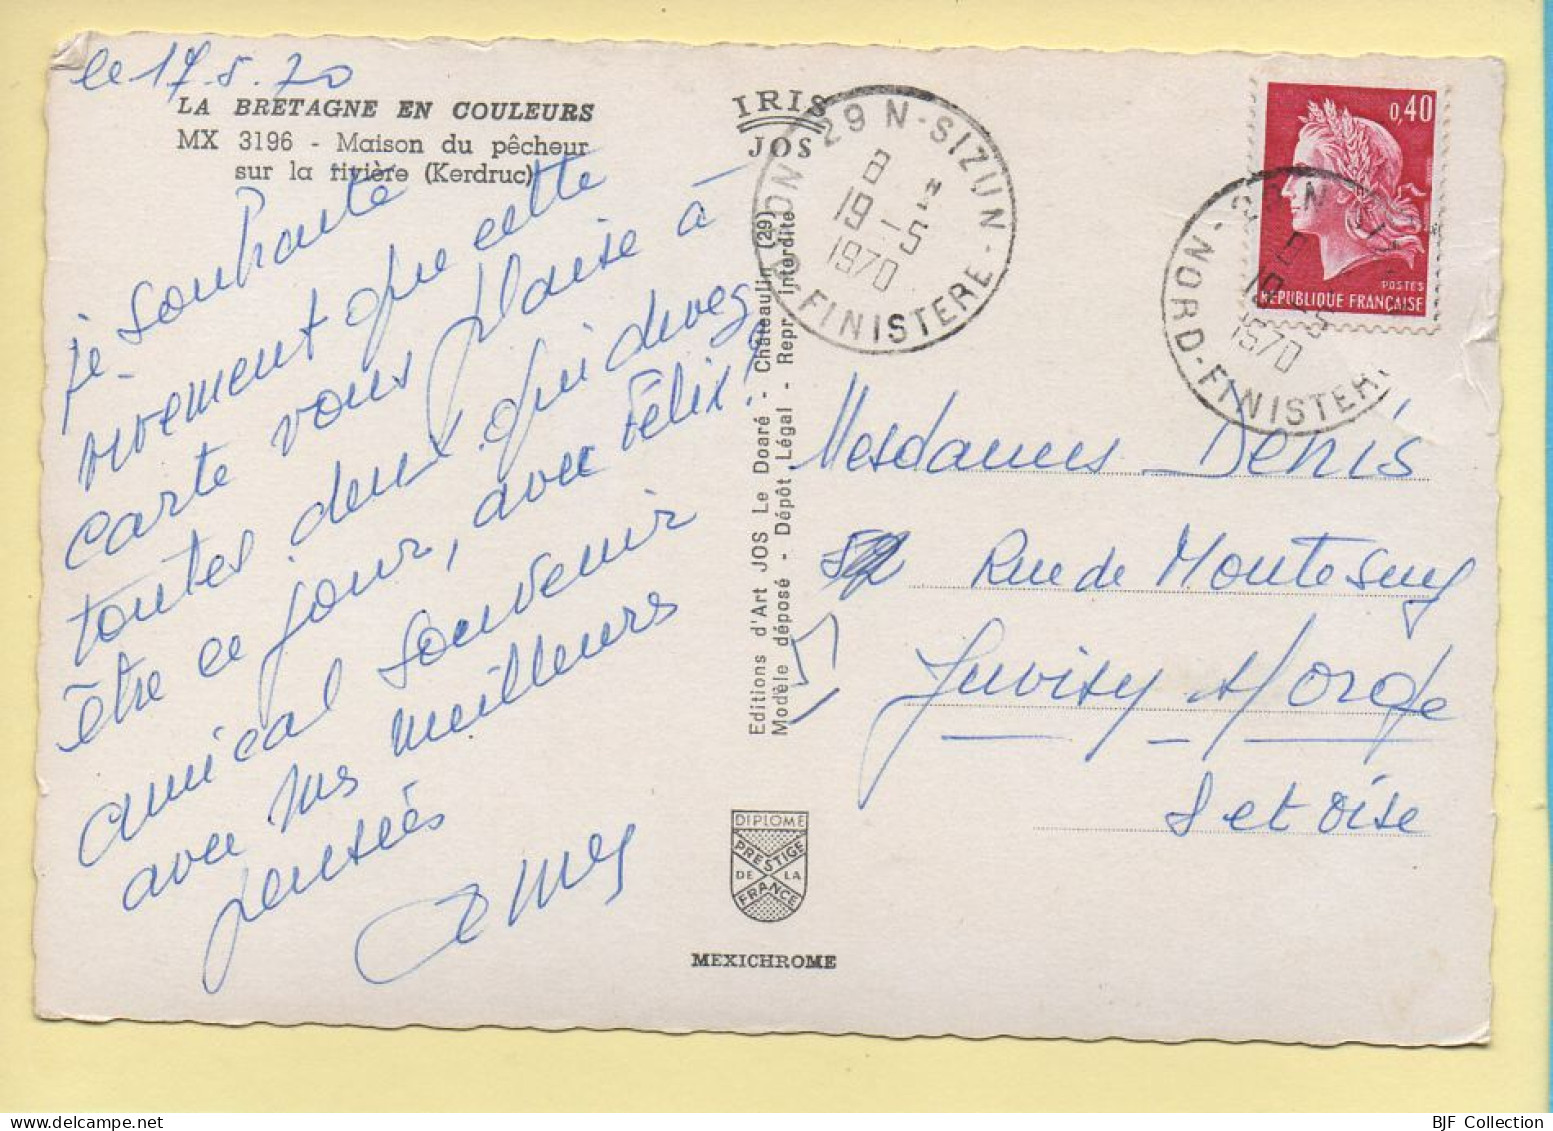 le 17.5.70
LA BRETAGNE EN COULEURS
MX 3196 - Maison du pêcheur
sur la rivière (Kerdruc)
je souhaite
vivement que cette
carte vous plaise à
toutes deux qui devez
être ce jour, avec Félix!
amical souvenir
avec mes meilleurs
pensées
IRIS
JOS
Editions d'Art JOS Le Doaré - Châteaulin (29)
Modèle déposé - Dépôt Légal - Repr. Interdite
DIPLOME
PRESTIGE
DE LA
FRANCE
MEXICHROME
29 N-SIZUN - NORD-FINISTERE
8 H
19-5
1970
0,40
POSTES
REPUBLIQUE FRANÇAISE
NORD-FINISTERE
1970
Mesdames Denis
Rue de Montessuy
Juvisy s/ Orge
S et Oise
57
BJF Collection